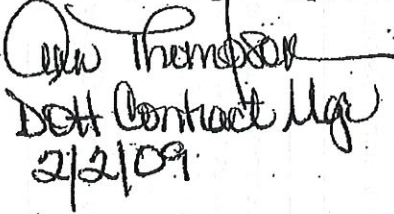 Ann Thompson
DOH Contract Mgr
2/2/09